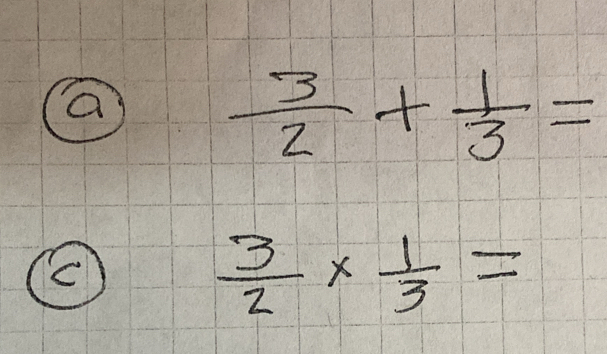 ⓐ 3/2 + 1/3 =
ⓒ 3/2 × 1/3 =